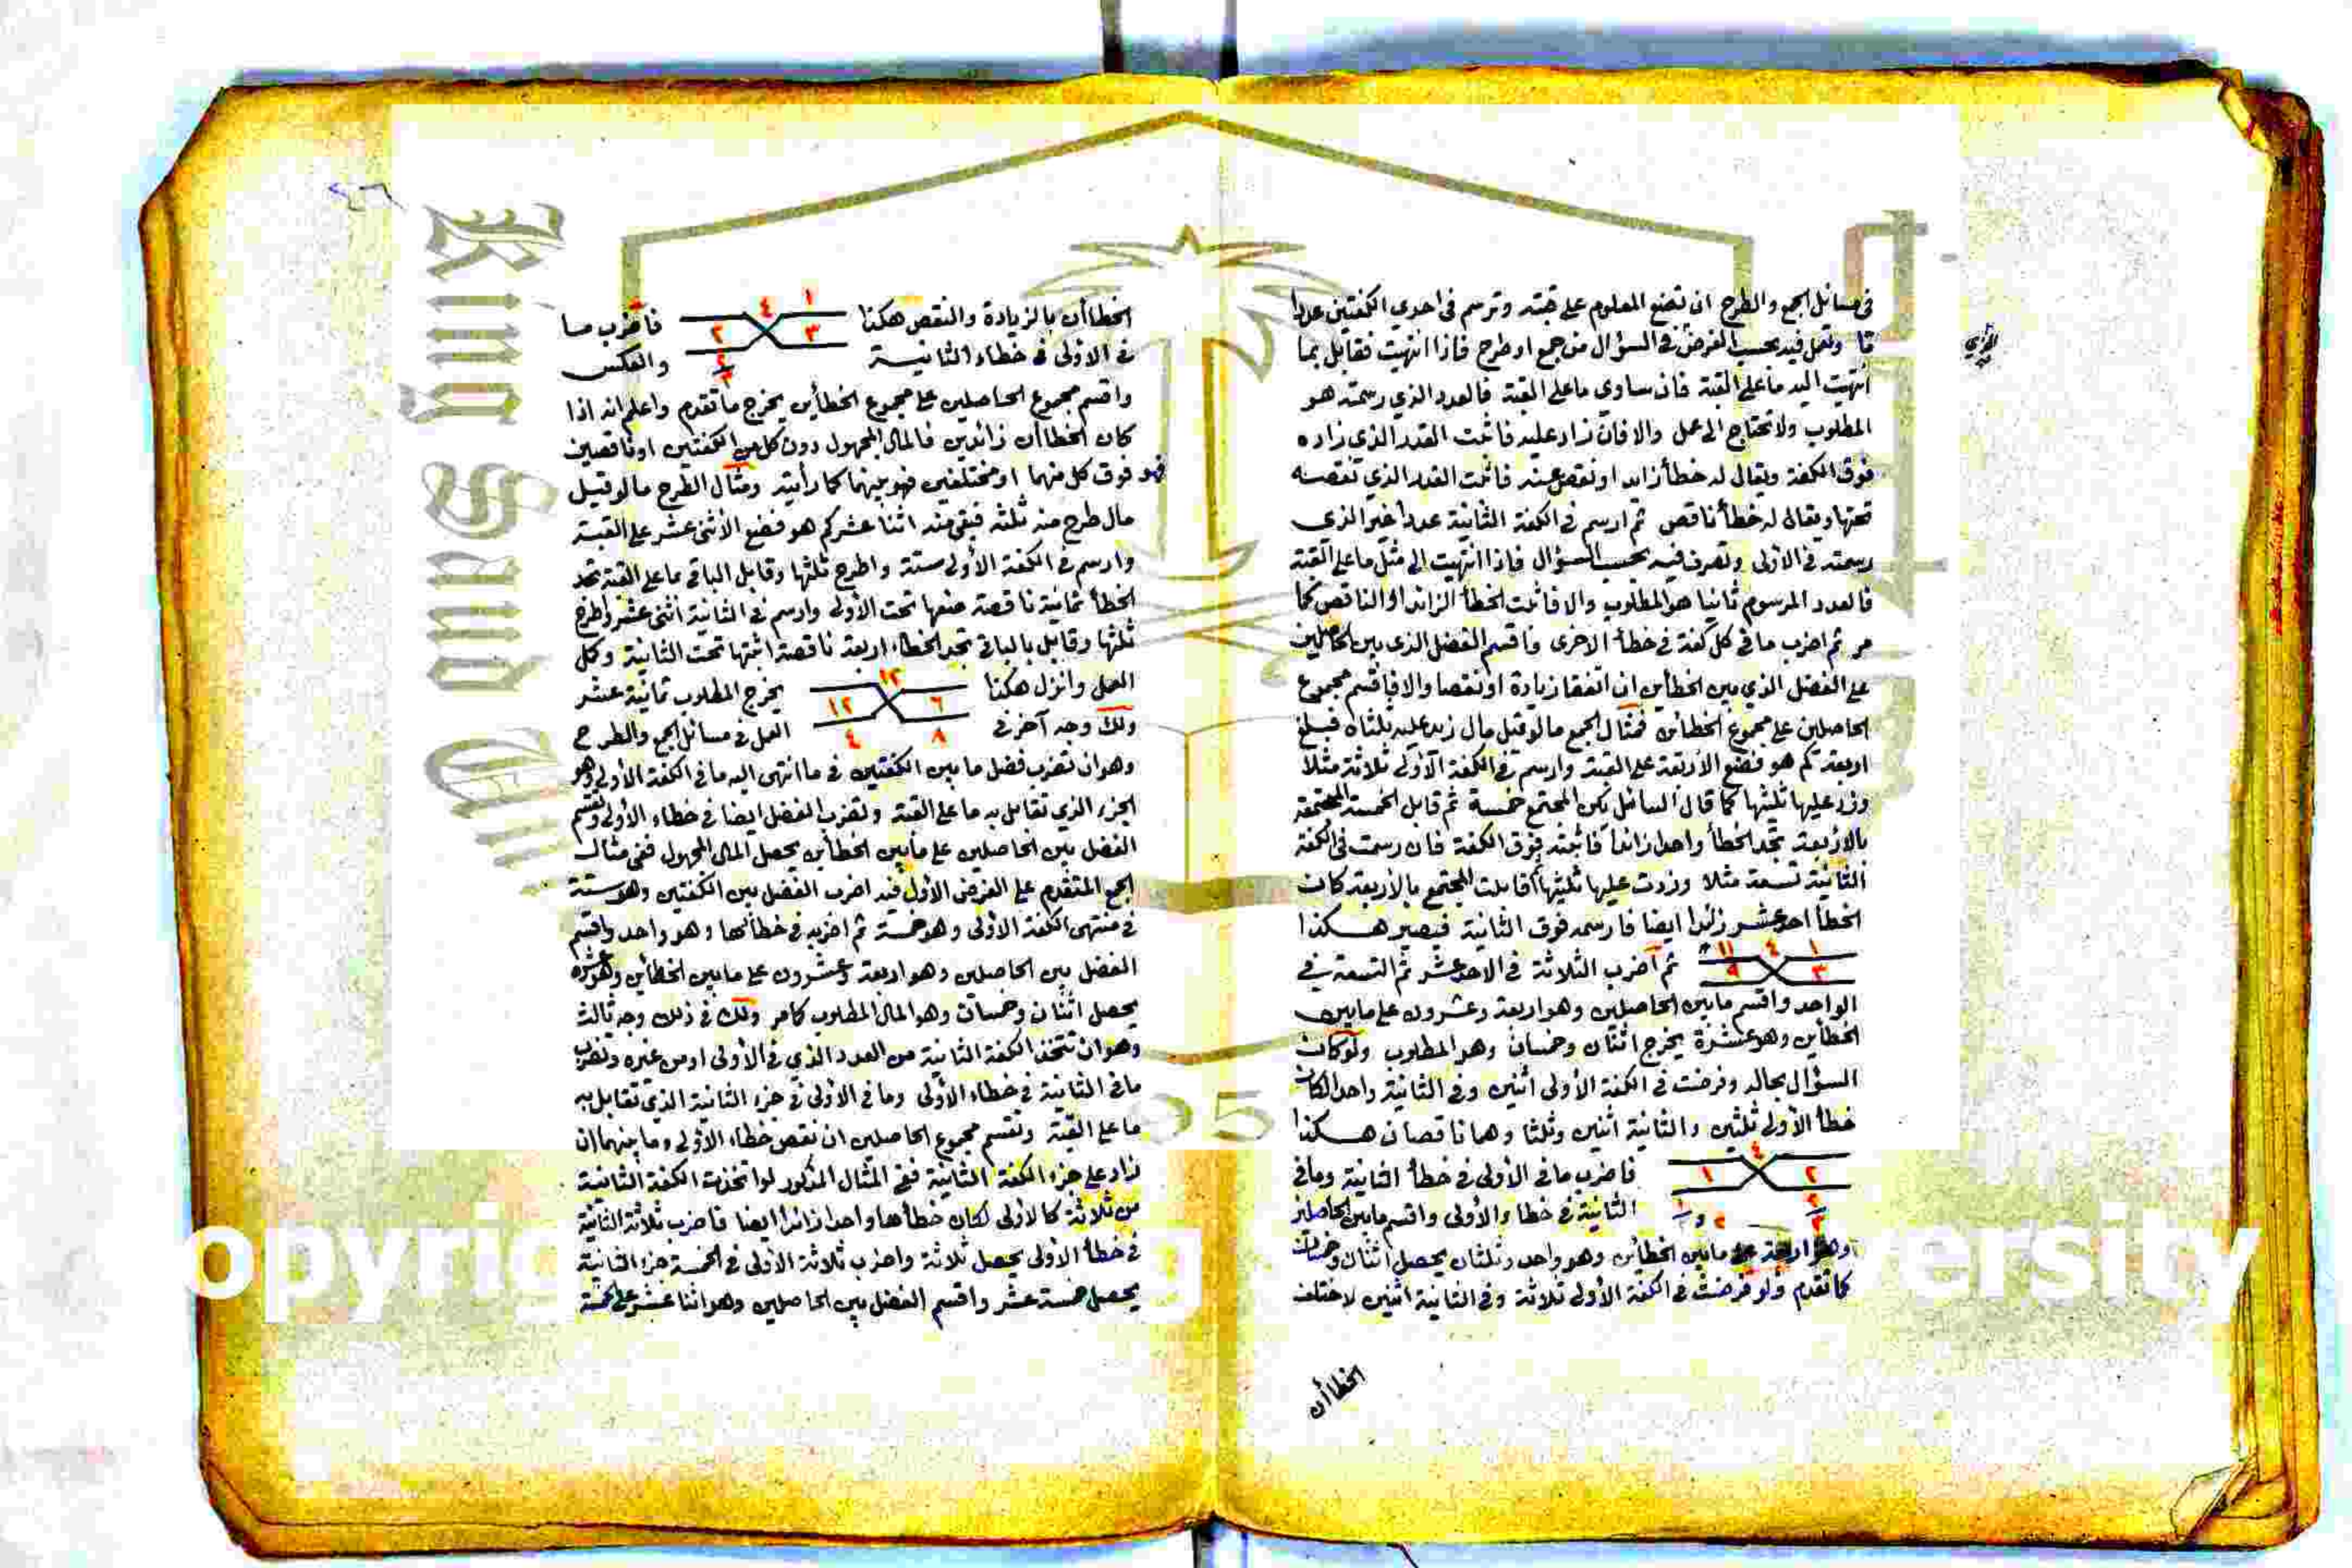 في مسائل الجمع والطرح ان تضع المعلوم على قبته وترسم في احدى الكفتين عددا
ما وتعمل فيه بحسب الفرض في السؤال من جمع او طرح فاذا انتهيت فقابل بما
انتهيت اليه ما على القبة فان ساوى ما على القبة فالعدد الذي رسمته هو
المطلوب ولا تحتاج الى عمل والا فان زاد عليه فاثبت القدر الذي زاده
فوق الكفة ويقال له خطأ زائد او نقص عنه فاثبت القدر الذي نقصه
تحتها ويقال له خطأ ناقص ثم ارسم في الكفة الثانية عددا غير الذي
رسمته في الاولى وتصرف فيه بحسب السؤال فاذا انتهيت الى مثل ما على القبة
فالعدد المرسوم ثانيا هو المطلوب والا فاثبت الخطأ الزائد او الناقص كما
مر ثم اضرب ما في كل كفة في خطأ الاخرى واقسم الفضل الذي بين الحاصلين
على الفضل الذي بين الخطأين ان اتفقا زيادة او نقصا والا فاقسم مجموع
الحاصلين على مجموع الخطأين فمثال الجمع ما لو قيل مال زيد عليه ثلثاه فبلغ
اربعة كم هو فضع الأربعة على القبة وارسم في الكفة الأولى ثلاثة مثلا
وزد عليها ثلثيها كما قال السائل يكن المجتمع خمسة ثم قابل الخمسة المجتمعة
بالاربعة تجد الخطأ واحدا زائدا فاثبته فوق الكفة فان رسمت في الكفة
الثانية تسعة مثلا وزدت عليها ثلثيها وقابلت المجتمع بالأربعة كان
الخطأ احد عشر زائدا ايضا فارسمه فوق الثانية فيصير هكذا
١ ٤ ١١
٣ ٩
ثم اضرب الثلاثة في الاحد عشر ثم التسعة في
الواحد واقسم ما بين الحاصلين وهو اربعة وعشرون على ما بين
الخطأين وهو عشرة يخرج اثنان وخمسان وهو المطلوب ولو كان
السؤال بحاله وفرضت في الكفة الأولى اثنين وفي الثانية واحدا لكان
خطأ الأولى ثلثين والثانية اثنين وثلثا وهما ناقصان هكذا
٤
٢ ١
فاضرب ما في الأولى في خطأ الثانية وما في
الثانية في خطأ الأولى واقسم ما بين الحاصلين
وهو اربعة على ما بين الخطأين وهو واحد وثلثان يحصل اثنان وخمسان
كما تقدم ولو فرضت في الكفة الأولى ثلاثة وفي الثانية اثنين لاختلف
الخطأان
الخطاأن بالزيادة والنقص هكذا
١ ٤
٣ ٢
٢
٣
فاضرب ما
في الاولى في خطاء الثانية والعكس
واقسم مجموع الحاصلين على مجموع الخطأين يخرج ما تقدم واعلم انه اذا
كان الخطاأن زائدين فالمال المجهول دون كل من الكفتين او ناقصين
فهو فوق كل منهما او مختلفين فهو بينهما كما رأيته ومثال الطرح ما لو قيل
مال طرح منه ثلثه فبقي منه اثنا عشر كم هو فضع الأثنى عشر على القبة
وارسم في الكفة الأولى ستة واطرح ثلثها وقابل الباقي بما على القبة تجد
الخطأ ثمانية ناقصة ضعها تحت الأولى وارسم في الثانية اثنى عشر واطرح
ثلثها وقابل بالباقي تجد الخطاء اربعة ناقصة اثبتها تحت الثانية وكمل
العمل وانزل هكذا
١٢
٦ ١٢
٨ ٤
يخرج المطلوب ثمانية عشر
ولك وجه آخر في العمل في مسائل الجمع والطرح
وهو ان تضرب فضل ما بين الكفتين في ما انتهى اليه ما في الكفة الأولى وهو
الجزء الذي تقابل به ما على القبة وتضرب الفضل ايضا في خطاء الأولى وتقسم
الفضل بين الحاصلين على ما بين الخطأين يحصل المال المجهول ففي مثال
الجمع المتقدم على الفرض الأول فيه اضرب الفضل بين الكفتين وهو ستة
في منتهى الكفة الاولى وهو خمسة ثم اضربه في خطائها وهو واحد واقسم
الفضل بين الحاصلين وهو اربعة وعشرون على ما بين الخطأين وهو عشرة
يحصل اثنان وخمسان وهو المال المطلوب كما مر ولك في ذلك وجه ثالث
وهو ان تتخذ الكفة الثانية من العدد الذي في الأولى او من غيره وتضرب
ما في الثانية في خطاء الأولى وما في الأولى في جزء الثانية الذي تقابل به
ما على القبة وتقسم مجموع الحاصلين ان نقص خطاء الأولى وما بينهما ان
زاد على جزء الكفة الثانية ففي المثال المذكور لو اتخذت الكفة الثانية
من ثلاثة كالاولى لكان خطأها واحدا زائدا ايضا فاضرب ثلاثة الثانية
في خطأ الأولى يحصل ثلاثة واضرب ثلاثة الاولى في الخمسة جزء الثانية
يحصل خمسة عشر واقسم الفضل بين الحاصلين وهو اثنا عشر على خمسة